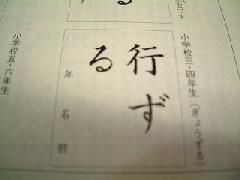 小学校三・四年生（ぎょうずる）
行ず
る
年 名前
小学校五・六年生